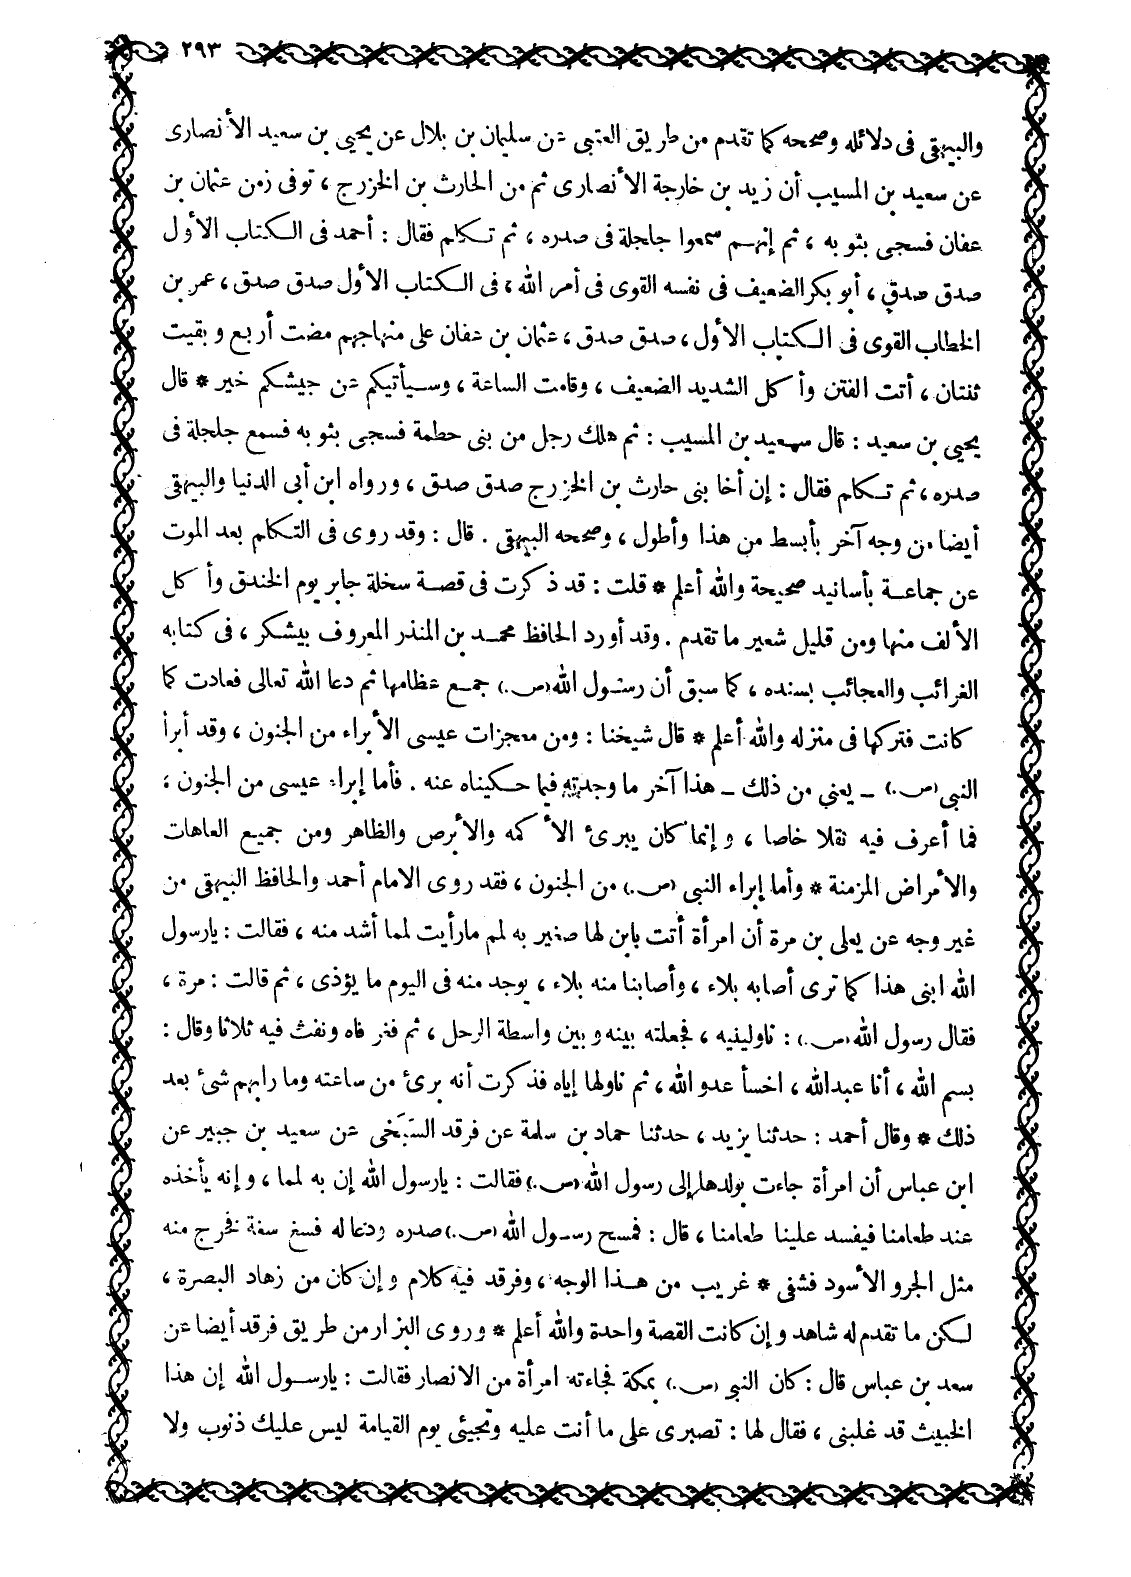 ٢٩٣
والبيهقى فى دلائله وصححه كما تقدم من طريق العتبى عن سليمان بن بلال عن يحيى بن سعيد الأنصارى
عن سعيد بن المسيب أن زيد بن خارجة الأنصارى ثم من الحارث بن الخزرج ، توفى زمن عثمان بن
عفان فسجى بثوبه ، ثم إنهم سمعوا جلجلة فى صدره ، ثم تكلم فقال : أحمد فى الكتاب الأول
صدق صدق ، أبو بكر الضعيف فى نفسه القوى فى أمر الله ، فى الكتاب الأول صدق صدق ، عمر بن
الخطاب القوى فى الكتاب الأول ، صدق صدق ، عثمان بن عفان على منهاجهم مضت أربع وبقيت
ثنتان ، أتت الفتن وأكل الشديد الضعيف ، وقامت الساعة ، وسيأتيكم عن جيشكم خير * قال
يحيى بن سعيد : قال سعيد بن المسيب : ثم هلك رجل من بنى حطمة فسجى بثوبه فسمع جلجلة فى
صدره ، ثم تكلم فقال : إن أخا بنى حارث بن الخزرج صدق صدق ، ورواه ابن أبى الدنيا والبيهقى
أيضا من وجه آخر بأبسط من هذا وأطول ، وصححه البيهقى . قال : وقد روى فى التكلم بعد الموت
عن جماعة بأسانيد صحيحة والله أعلم * قلت : قد ذكرت فى قصة سخلة جابر يوم الخندق وأكل
الألف منها ومن قليل شعير ما تقدم . وقد أورد الحافظ محمد بن المنذر المعروف بيشكر ، فى كتابه
الغرائب والعجائب بسنده ، كما سبق أن رسول الله (ص.) جمع عظامها ثم دعا الله تعالى فعادت كما
كانت فتركها فى منزله والله أعلم * قال شيخنا : ومن معجزات عيسى الأبراء من الجنون ، وقد أبرأ
النبى (ص.) ــ يعني من ذلك ــ هذا آخر ما وجدته فيما حكيناه عنه . فأما إبراء عيسى من الجنون ،
فما أعرف فيه نقلا خاصا ، وإنما كان يبرئ الأكمه والأبرص والظاهر ومن جميع العاهات
والأمراض المزمنة * وأما إبراء النبى (ص.) من الجنون ، فقد روى الامام أحمد والحافظ البيهقى من
غير وجه عن يعلى بن مرة أن امرأة أتت بابن لها صغير به لمم مارأيت لمما أشد منه ، فقالت : يارسول
الله ابنى هذا كما ترى أصابه بلاء ، وأصابنا منه بلاء ، يوجد منه فى اليوم ما يؤذى ، ثم قالت : مرة ،
فقال رسول الله (ص.) : ناولينيه ، فجعلته بينه وبين واسطة الرحل ، ثم فغر فاه ونفث فيه ثلاثا وقال :
بسم الله ، أنا عبدالله ، اخسأ عدو الله ، ثم ناولها إياه فذكرت أنه برئ من ساعته وما رابهم شئ بعد
ذلك * وقال أحمد : حدثنا يزيد ، حدثنا حماد بن سلمة عن فرقد السَبَخى عن سعيد بن جبير عن
ابن عباس أن امرأة جاءت بولدها إلى رسول الله (ص.) فقالت : يارسول الله إن به لمما ، وإنه يأخذه
عند طعامنا فيفسد علينا طعامنا ، قال : فمسح رسول الله (ص.) صدره ودعا له فسغ سغة فخرج منه
مثل الجرو الأسود فشفى * غريب من هذا الوجه ، وفرقد فيه كلام وإن كان من زهاد البصرة ،
لكن ما تقدم له شاهد وإن كانت القصة واحدة والله أعلم * وروى البزار من طريق فرقد أيضا عن
سعد بن عباس قال : كان النبى (ص.) بمكة فجاءته امرأة من الانصار فقالت : يارسول الله إن هذا
الخبيث قد غلبنى ، فقال لها : تصبرى على ما أنت عليه وتجيئى يوم القيامة ليس عليك ذنوب ولا